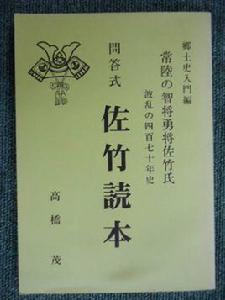 郷土史入門編
常陸の智将勇将佐竹氏
波乱の四百七十年史
問答式
佐竹読本
高橋茂